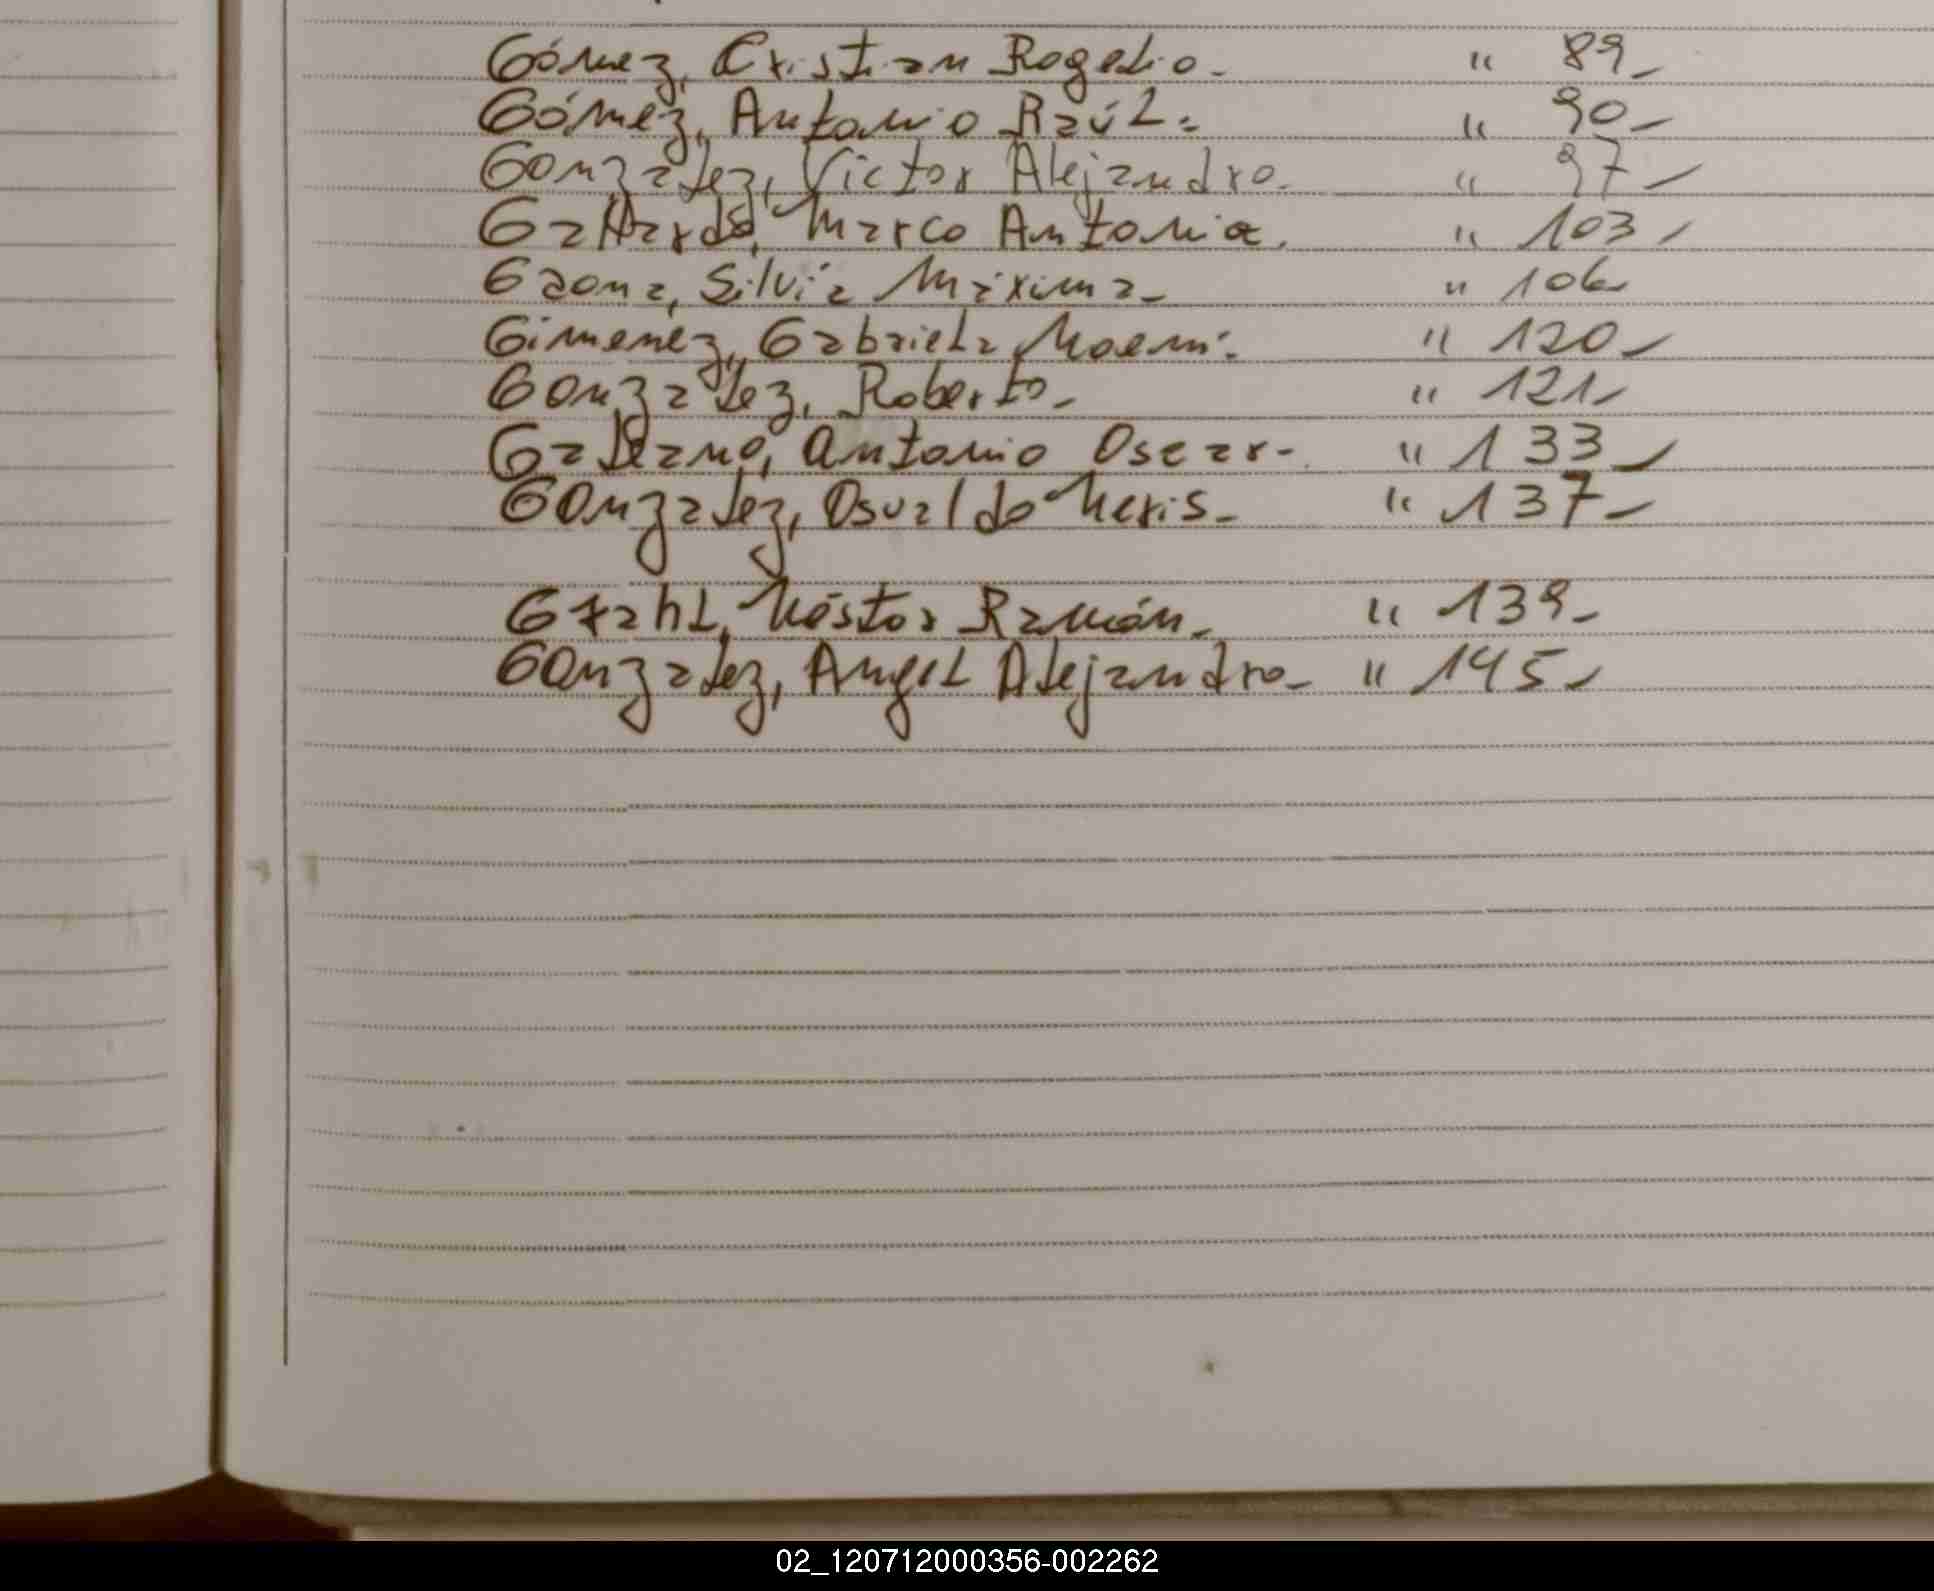 Gómez, Cristian Rogelio. " 89_
Gómez, Antonio Raúl. " 90_
Gonzalez, Victor Alejandro. " 97_
Gallardo, Marco Antonio. " 103_
Gaona, Silvia Máxima_ " 106_
Gimenez, Gabriela Noemí. " 120_
Gonzalez, Roberto_ " 121_
Galeano, Antonio Oscar-. " 133_
Gonzalez, Osvaldo Neris_ " 137_
Grahl, Néstor Ramón_ " 139_
Gonzalez, Angel Alejandro_ " 145_
02_120712000356-002262